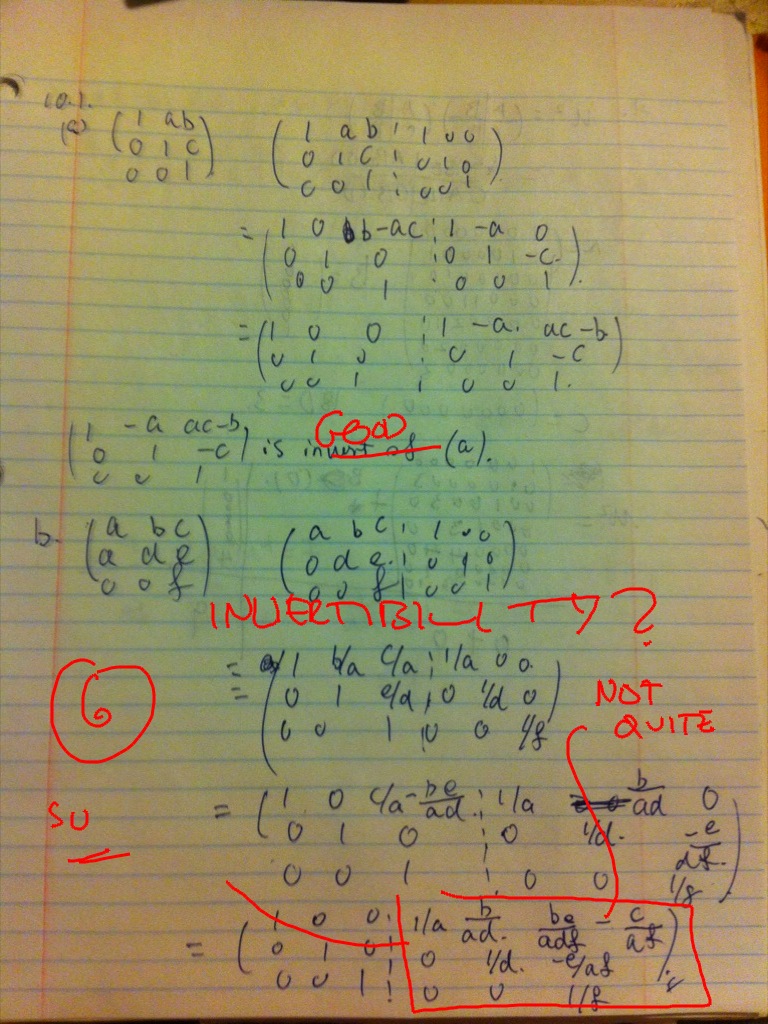 10.1.
(a) ( 1 a b ( 1 a b ¦ 1 0 0
0 1 c 0 1 c ¦ 0 1 0
0 0 1 ) 0 0 1 ¦ 0 0 1 )
= ( 1 0 b-ac ¦ 1 -a 0
0 1 0 ¦ 0 1 -c.
0 0 1 ¦ 0 0 1 ).
= ( 1 0 0 ¦ 1 -a. ac-b
0 1 0 ¦ 0 1 -c
0 0 1 ¦ 0 0 1. )
GOOD
( 1 -a ac-b
0 1 -c ) is invert of (a).
0 0 1
b. ( a b c ( a b c ¦ 1 0 0
a d e 0 d e ¦ 0 1 0
0 0 f ) 0 0 f ¦ 0 0 1 )
INVERTIBILITY?
= ( 1 b/a c/a ¦ 1/a 0 0
= 0 1 e/d ¦ 0 1/d 0
0 0 1 ¦ 0 0 1/f )
NOT
QUITE
6
SU
= ( 1 0 c/a - be/ad ¦ 1/a b/ad 0
0 1 0 ¦ 0 1/d. -e/df.
0 0 1 ¦ 0 0 1/f )
= ( 1 0 0 ¦ 1/a b/ad. be/adf - c/af
0 1 0 ¦ 0 1/d. -e/af
0 0 1 ¦ 0 0 1/f )